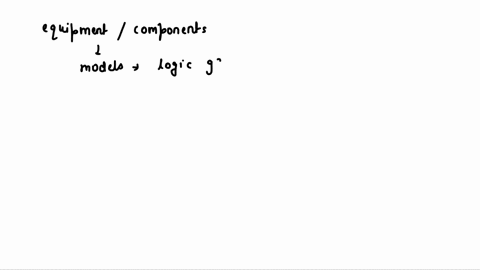 equipment / components
↓
models → logic g